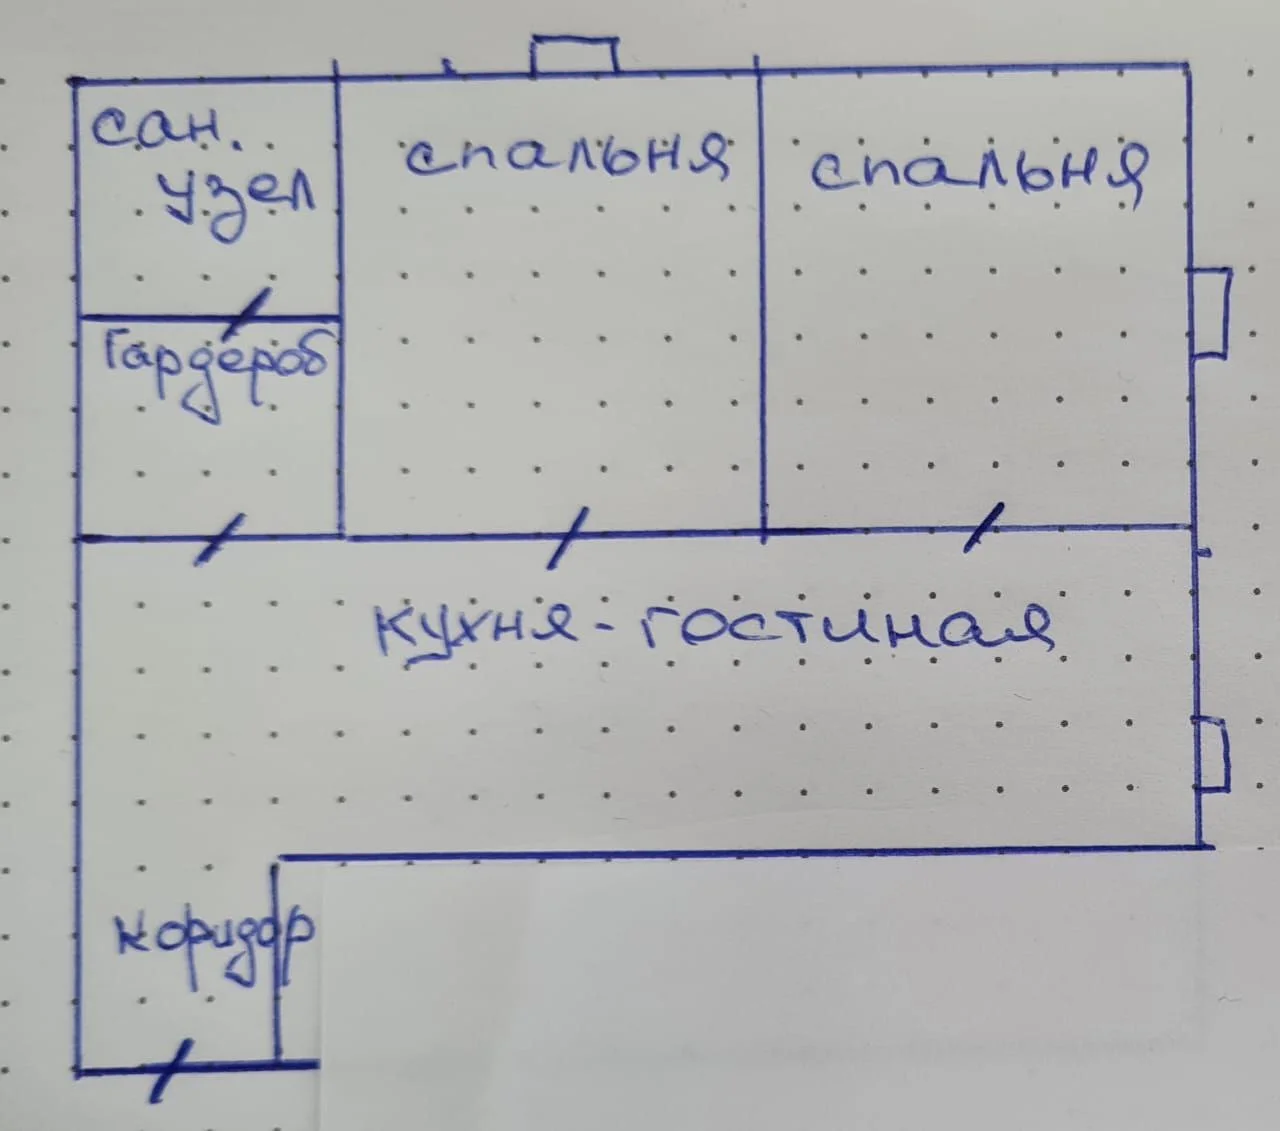 сан.
узел
спальня
спальня
Гардероб
кухня-гостиная
коридор